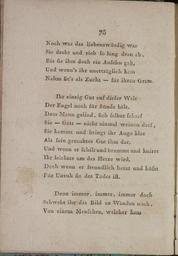 75
Noch war das liebenswürdig war
Sie dacht und sich so hing dran ab,
Bis sie ihm doch ein Ansehn gab,
Und wenn's ihr unerträglich kam
Nahm sie's als Zucht — für ihren Gram.
Ihr einzig Gut auf dieser Welt
Der Engel noch für Sünde hält,
Dem Mann gefiel, sich selber
Sie — Gott — nicht einmal weinen darf,
Sie kommt und bringt ihr Auge klar
Als sein gemachtes Gut ihm dar,
Und wenn er schilt und brummt und knirrt
Ihr leichter um das Herze wird,
Doch wenn er freundlich herzt und küßt
Für Unruh sie des Todes ist.
Denn immer, immer, immer doch
Schwebt ihr das Bild an Wänden noch,
Von einem Menschen, welcher kam